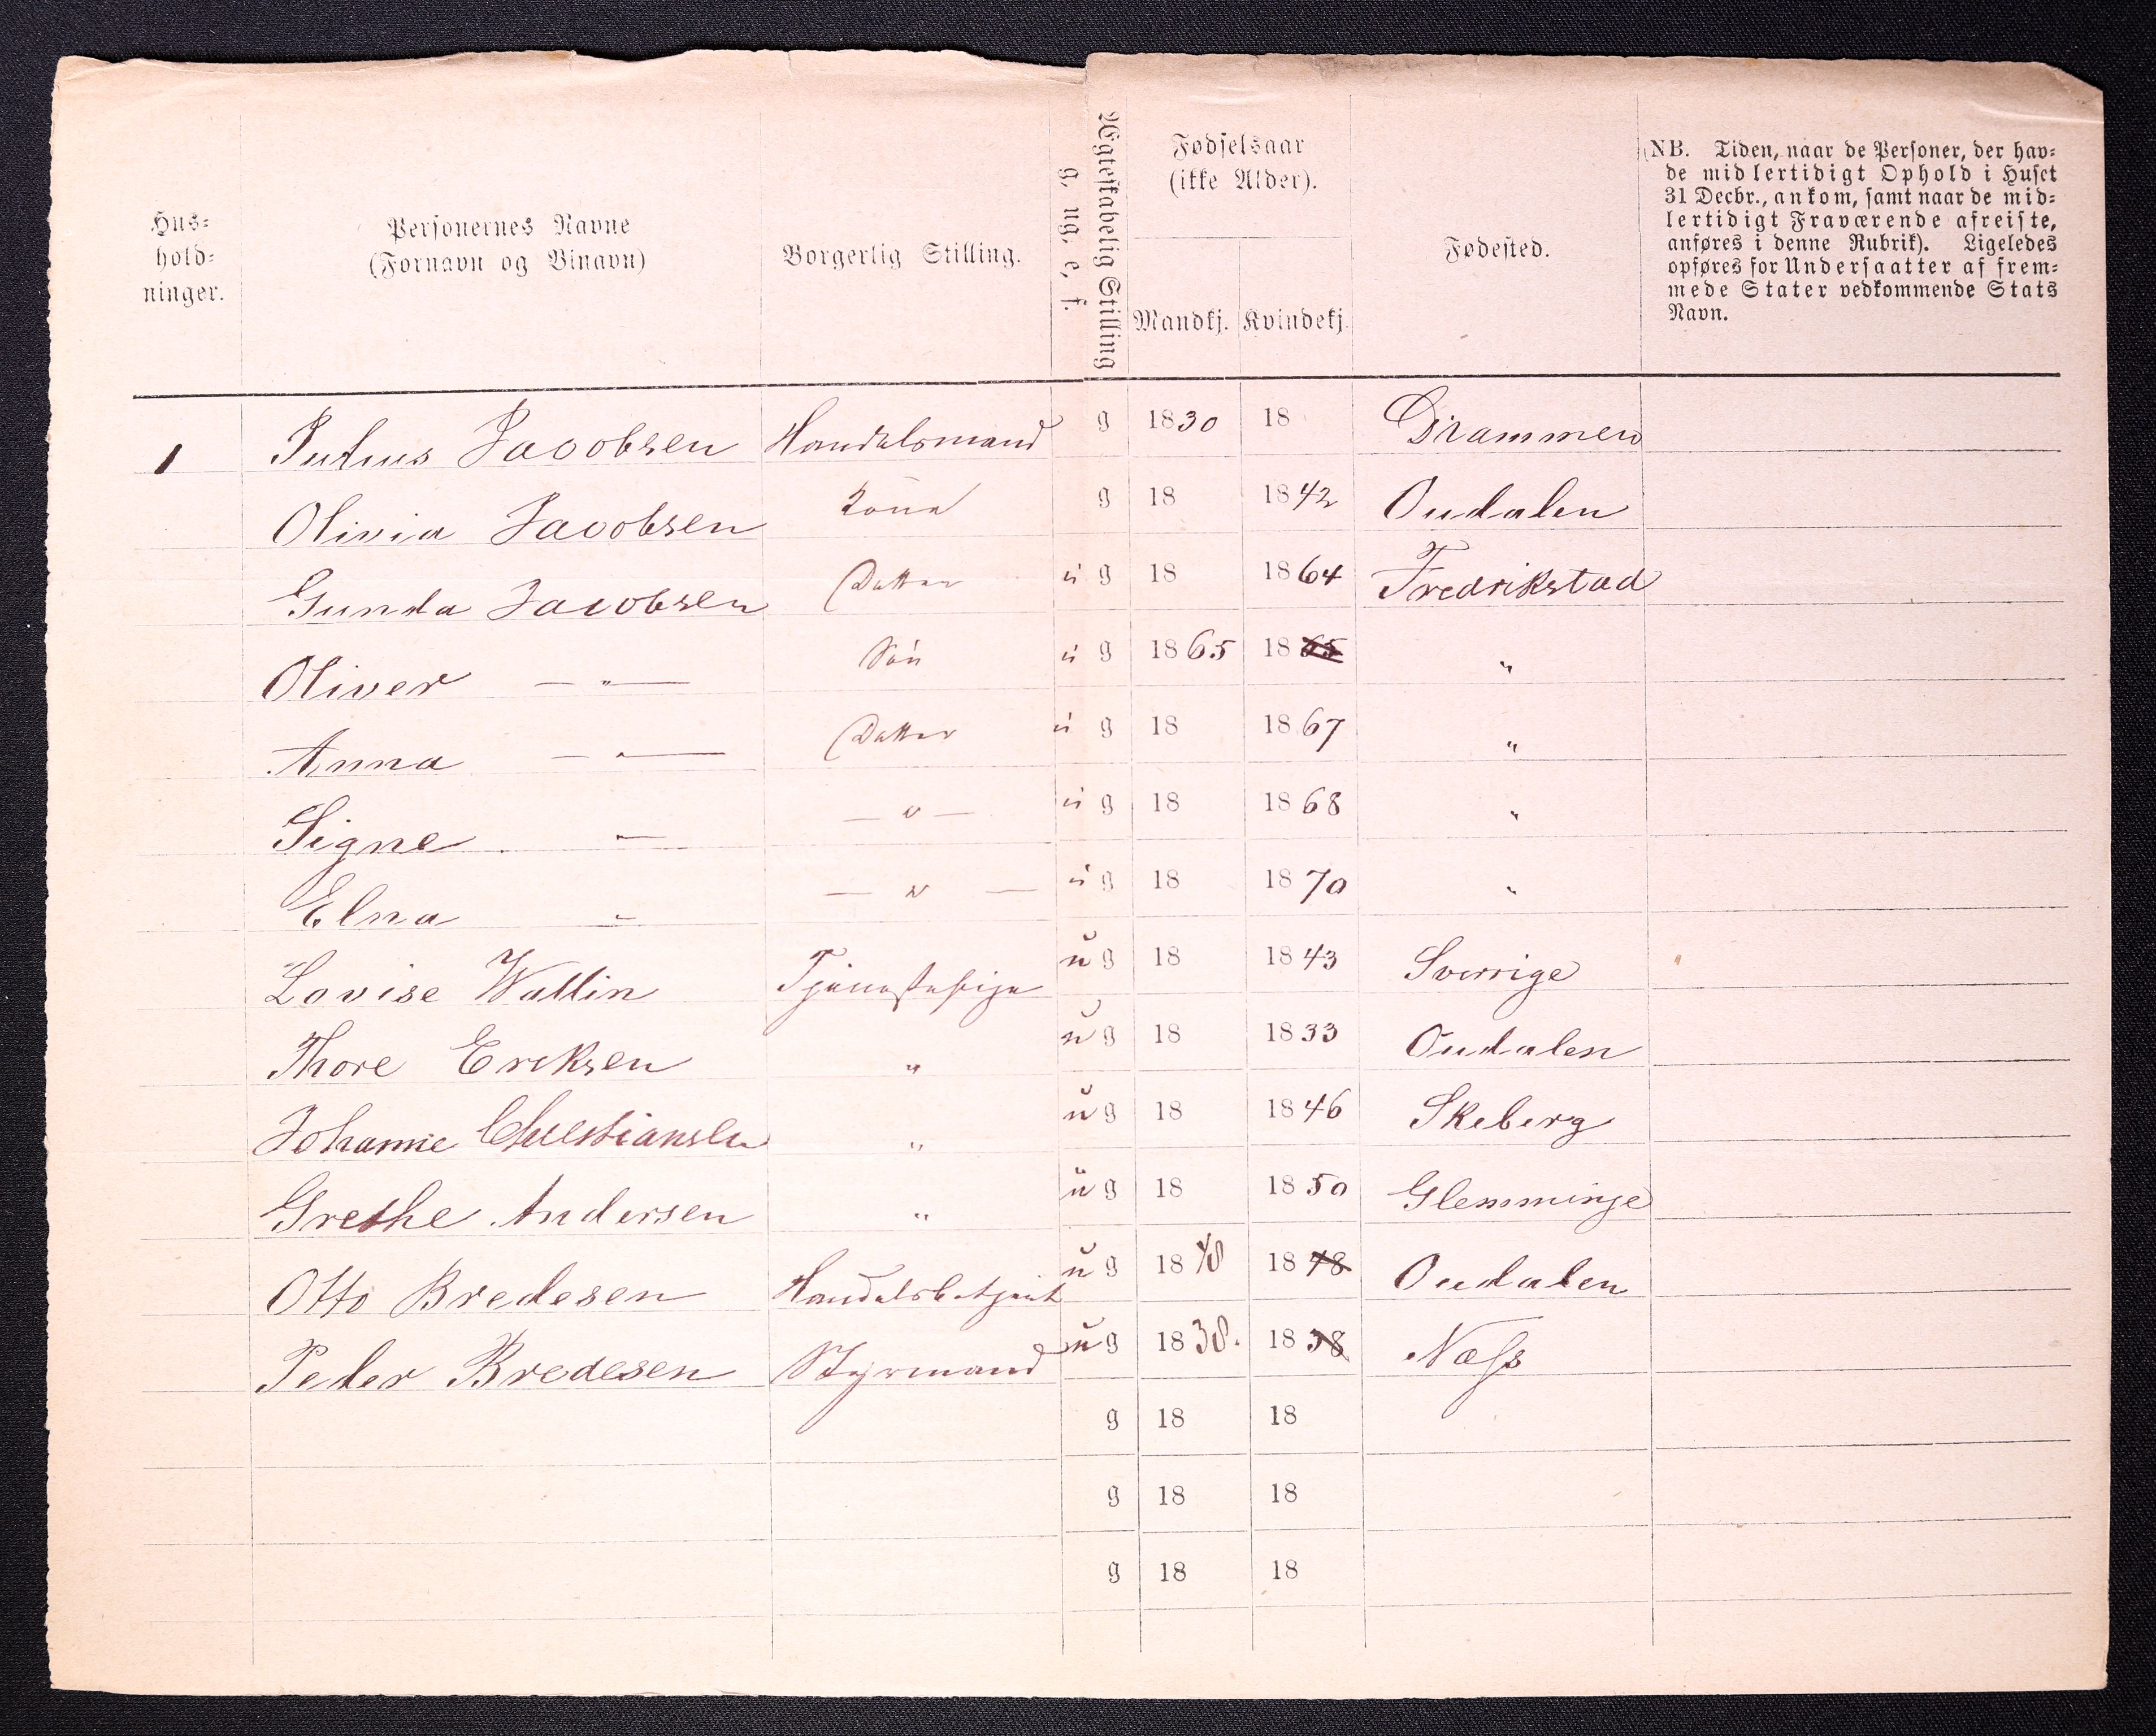 Hus=
hold=
ninger.
Personernes Navne
(Fornavn og Binavn)
Borgerlig Stilling.
Ægteskabelig Stilling
g, ug, e, f.
Fødselsaar
(ikke Alder).
Mandkj. Kvindekj.
Fødested.
(NB. Tiden, naar de Personer, der hav=
de midlertidigt Ophold i Huset
31 Decbr., ankom, samt naar de mid=
lertidigt Fraværende afreiste,
anføres i denne Rubrik). Ligeledes
opføres for Undersaatter af frem=
mede Stater vedkommende Stats
Navn.
1 Julius Jacobsen Handelsmand g 1830 18 Drammen
Olivia Jacobsen Kone g 18 1842 Oudalen
Gunda Jacobsen Datter ug 18 1864 Fredrikstad
Oliver — " — Søn ug 1865 1865 "
Anna — " — Datter ug 18 1867 "
Signe — — " — ug 18 1868 "
Elna " — " — ug 18 1870 "
Lovise Wallin Tjenestepige ug 18 1843 Sverrige
Thore Ericksen " ug 18 1833 Oudalen
Johanne Christiansen " ug 18 1846 Skeberg
Grethe Andersen " ug 18 1850 Glemminge
Otto Bredesen Handelsbetjent ug 1848 1848 Oudalen
Peter Bredesen Styrmand ug 1838. 1838 Næss
g 18 18
g 18 18
g 18 18